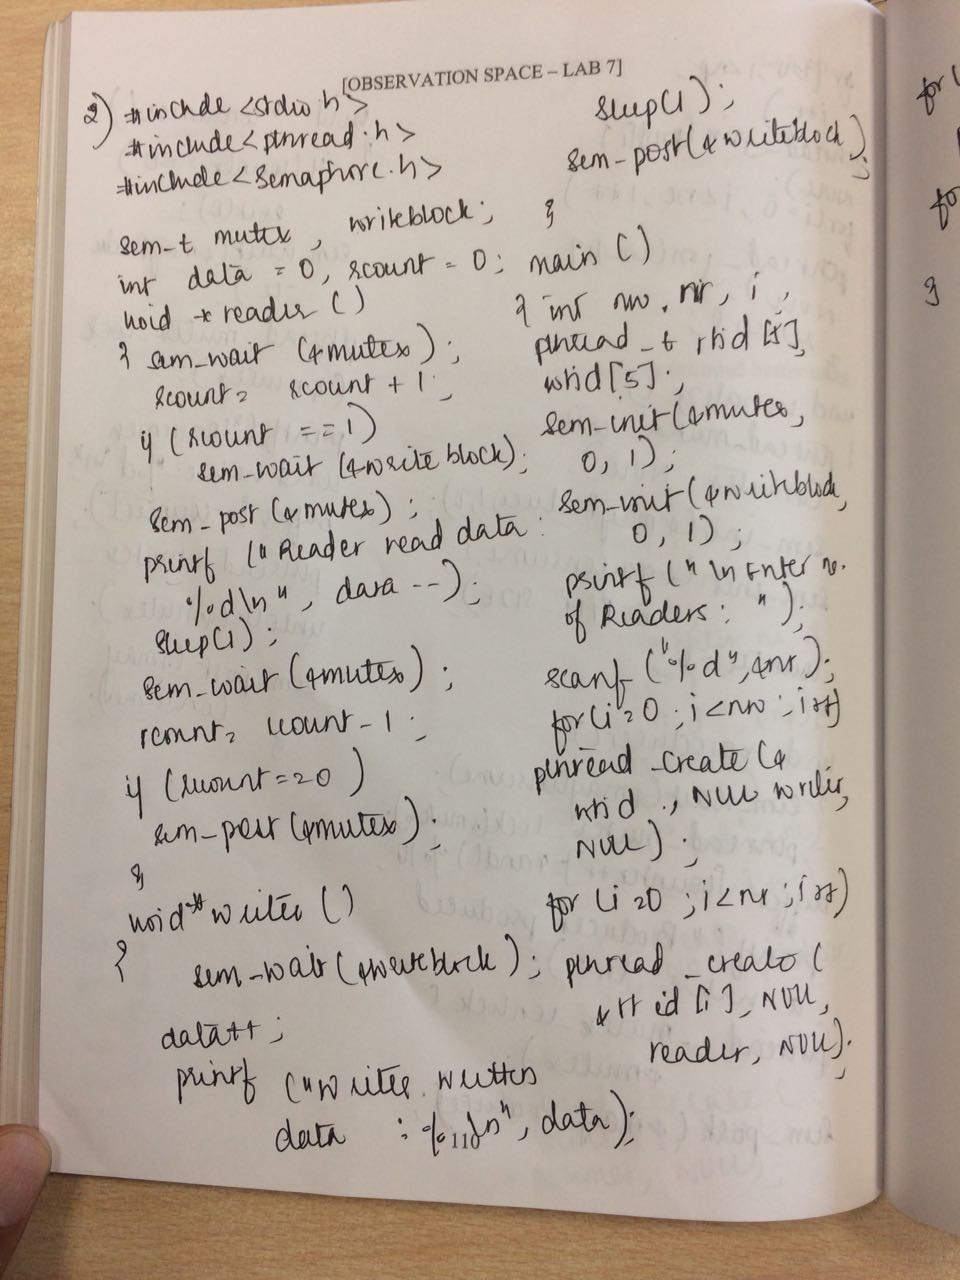 [OBSERVATION SPACE – LAB 7]
2) #include <stdio.h>
#include <pthread.h>
#include <semaphore.h>
sem_t mutex, writeblock;
int data = 0, rcount = 0;
void *reader ()
{ sem_wait (&mutex);
rcount = rcount + 1;
if (rcount == 1)
sem_wait (&writeblock);
sem_post (&mutex);
printf ("Reader read data :
%d\n", data --);
sleep(1);
sem_wait (&mutex);
rcount = rcount - 1;
if (rcount == 0)
sem_post (&mutex);
}
void *writer ()
{ sem_wait (&writeblock);
data++;
printf ("Writer written
data : %d\n", data);
110
sleep(1);
sem_post (&writeblock);
}
main ()
{ int nw, nr, i,
pthread_t rtid [5],
wtid[5];
sem_init (&mutex,
0, 1);
sem_init (&writeblock,
0, 1);
printf ("\n Enter no.
of Readers : ");
scanf ("%d", &nr);
for (i=0 ; i<nw ; i++)
pthread_create (&
wtid , NULL writer,
NULL);
for (i=0 ; i<nr ; i++)
pthread_create (
&rtid [i], NULL,
reader, NULL);
for (
for
}